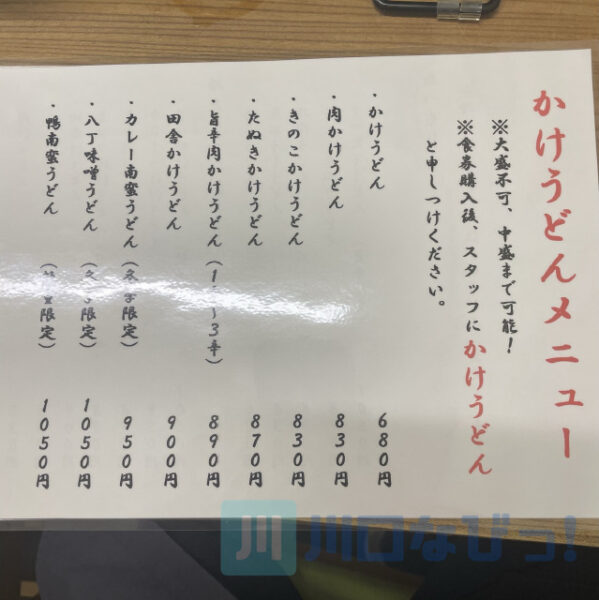 かけうどんメニュー
※大盛不可、中盛まで可能！
※食券購入後、スタッフにかけうどん
と申しつけください。
・かけうどん 680円
・肉かけうどん 830円
・きのこかけうどん 830円
・たぬきかけうどん 870円
・旨辛肉かけうどん（1 〜3辛） 890円
・田舎かけうどん 900円
・カレー南蛮うどん（冬季限定） 950円
・八丁味噌うどん（冬季限定） 1050円
・鴨南蛮うどん 限定） 1050円
川口なびっ！